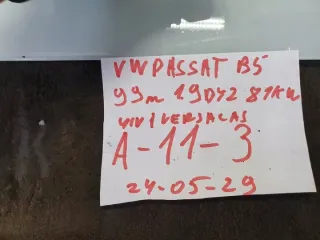 VW PASSAT B5
99m 1.9 DYZ 81KW
UNIVERSALAS
A-11-3
24-05-29